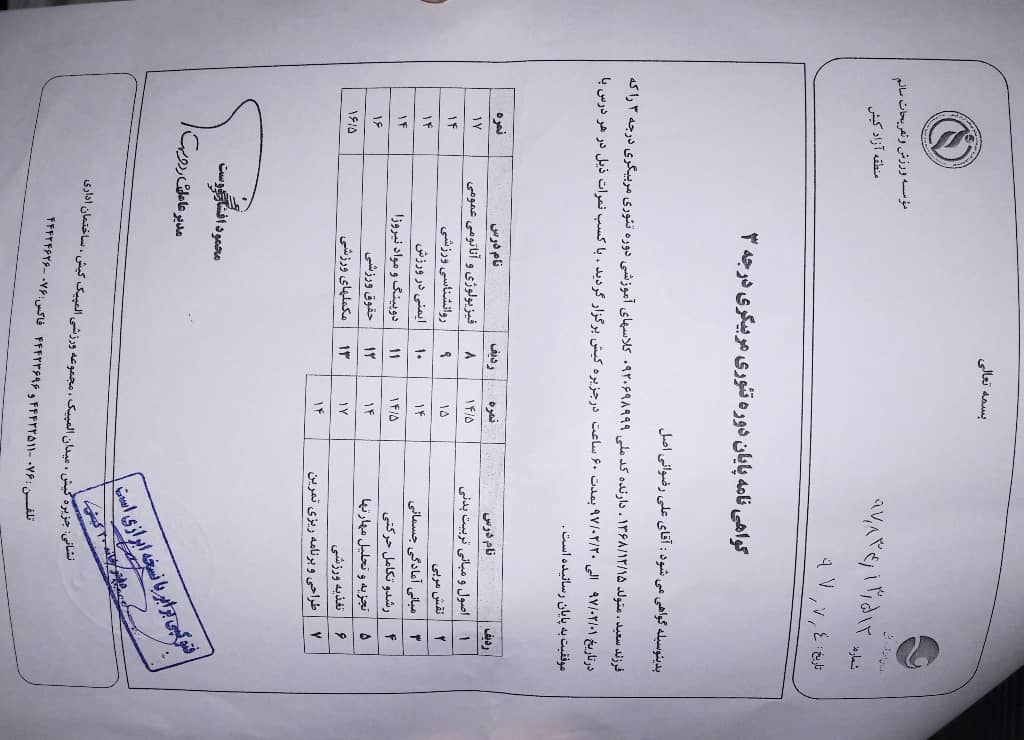 بسمه تعالی
موسسه ورزش و تفریحات سالم
منطقه آزاد کیش
شماره: ۹۷,۸۳۴,۱۳,۵۱۲
تاریخ: ۹۷,۷,۴
گواهی نامه پایان دوره تئوری مربیگری درجه ۳
بدینوسیله گواهی می شود : آقای علی رضوانی اصل
فرزند سعید، متولد ۱۳۶۸/۱۲/۱۵، دارنده کد ملی ۰۹۲۰۶۹۸۹۹۹ کلاسهای آموزشی دوره تئوری مربیگری درجه ۳ را که
درتاریخ ۹۷/۰۲/۰۱ الی ۹۷/۰۲/۲۰ بمدت ۶۰ ساعت درجزیره کیش برگزار گردید . با کسب نمرات ذیل در هر درس با
موفقیت به پایان رسانیده است .
ردیف نام درس نمره ردیف نام درس نمره
۱ اصول و مبانی تربیت بدنی ۱۴/۵ ۸ فیزیولوژی و آناتومی عمومی ۱۷
۲ نقش مربی ۱۵ ۹ روانشناسی ورزشی ۱۴
۳ مبانی آمادگی جسمانی ۱۴ ۱۰ ایمنی در ورزش ۱۴
۴ رشد و تکامل حرکتی ۱۴/۵ ۱۱ دوپینگ و مواد نیروزا ۱۴
۵ تجزیه و تحلیل مهارتها ۱۴ ۱۲ حقوق ورزشی ۱۶
۶ تغذیه ورزشی ۱۷ ۱۳ مکملهای ورزشی ۱۶/۵
۷ طراحی و برنامه ریزی تمرین ۱۴
محمود افشاردوست
مدیر عامل
فتوکپی برابر با نسخه ابرازی است
نشانی: جزیره کیش ، میدان المپیک ، مجموعه ورزشی المپیک کیش ، ساختمان اداری
تلفن : ۰۷۶-۴۴۴۲۲۵۱۱ و ۴۴۴۲۳۶۹۶ فاکس: ۰۷۶-۴۴۴۲۴۶۲۶